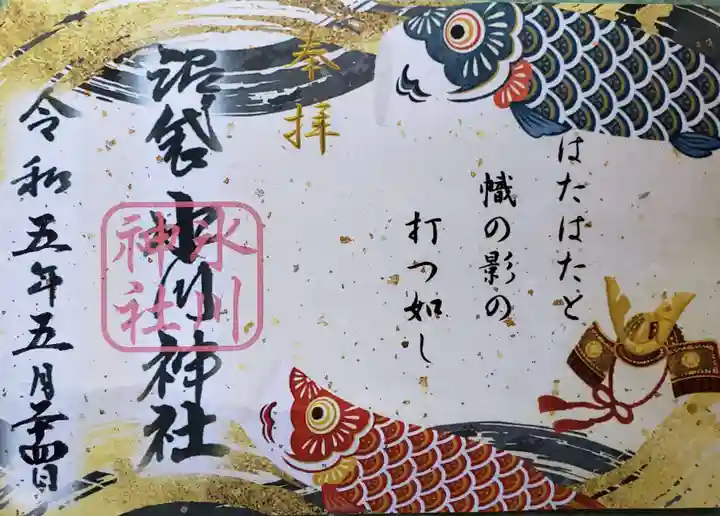 はたはたと
幟の影の
打つ如し
奉拝
沼袋 氷川神社
氷川
神社
令和五年五月二十四日